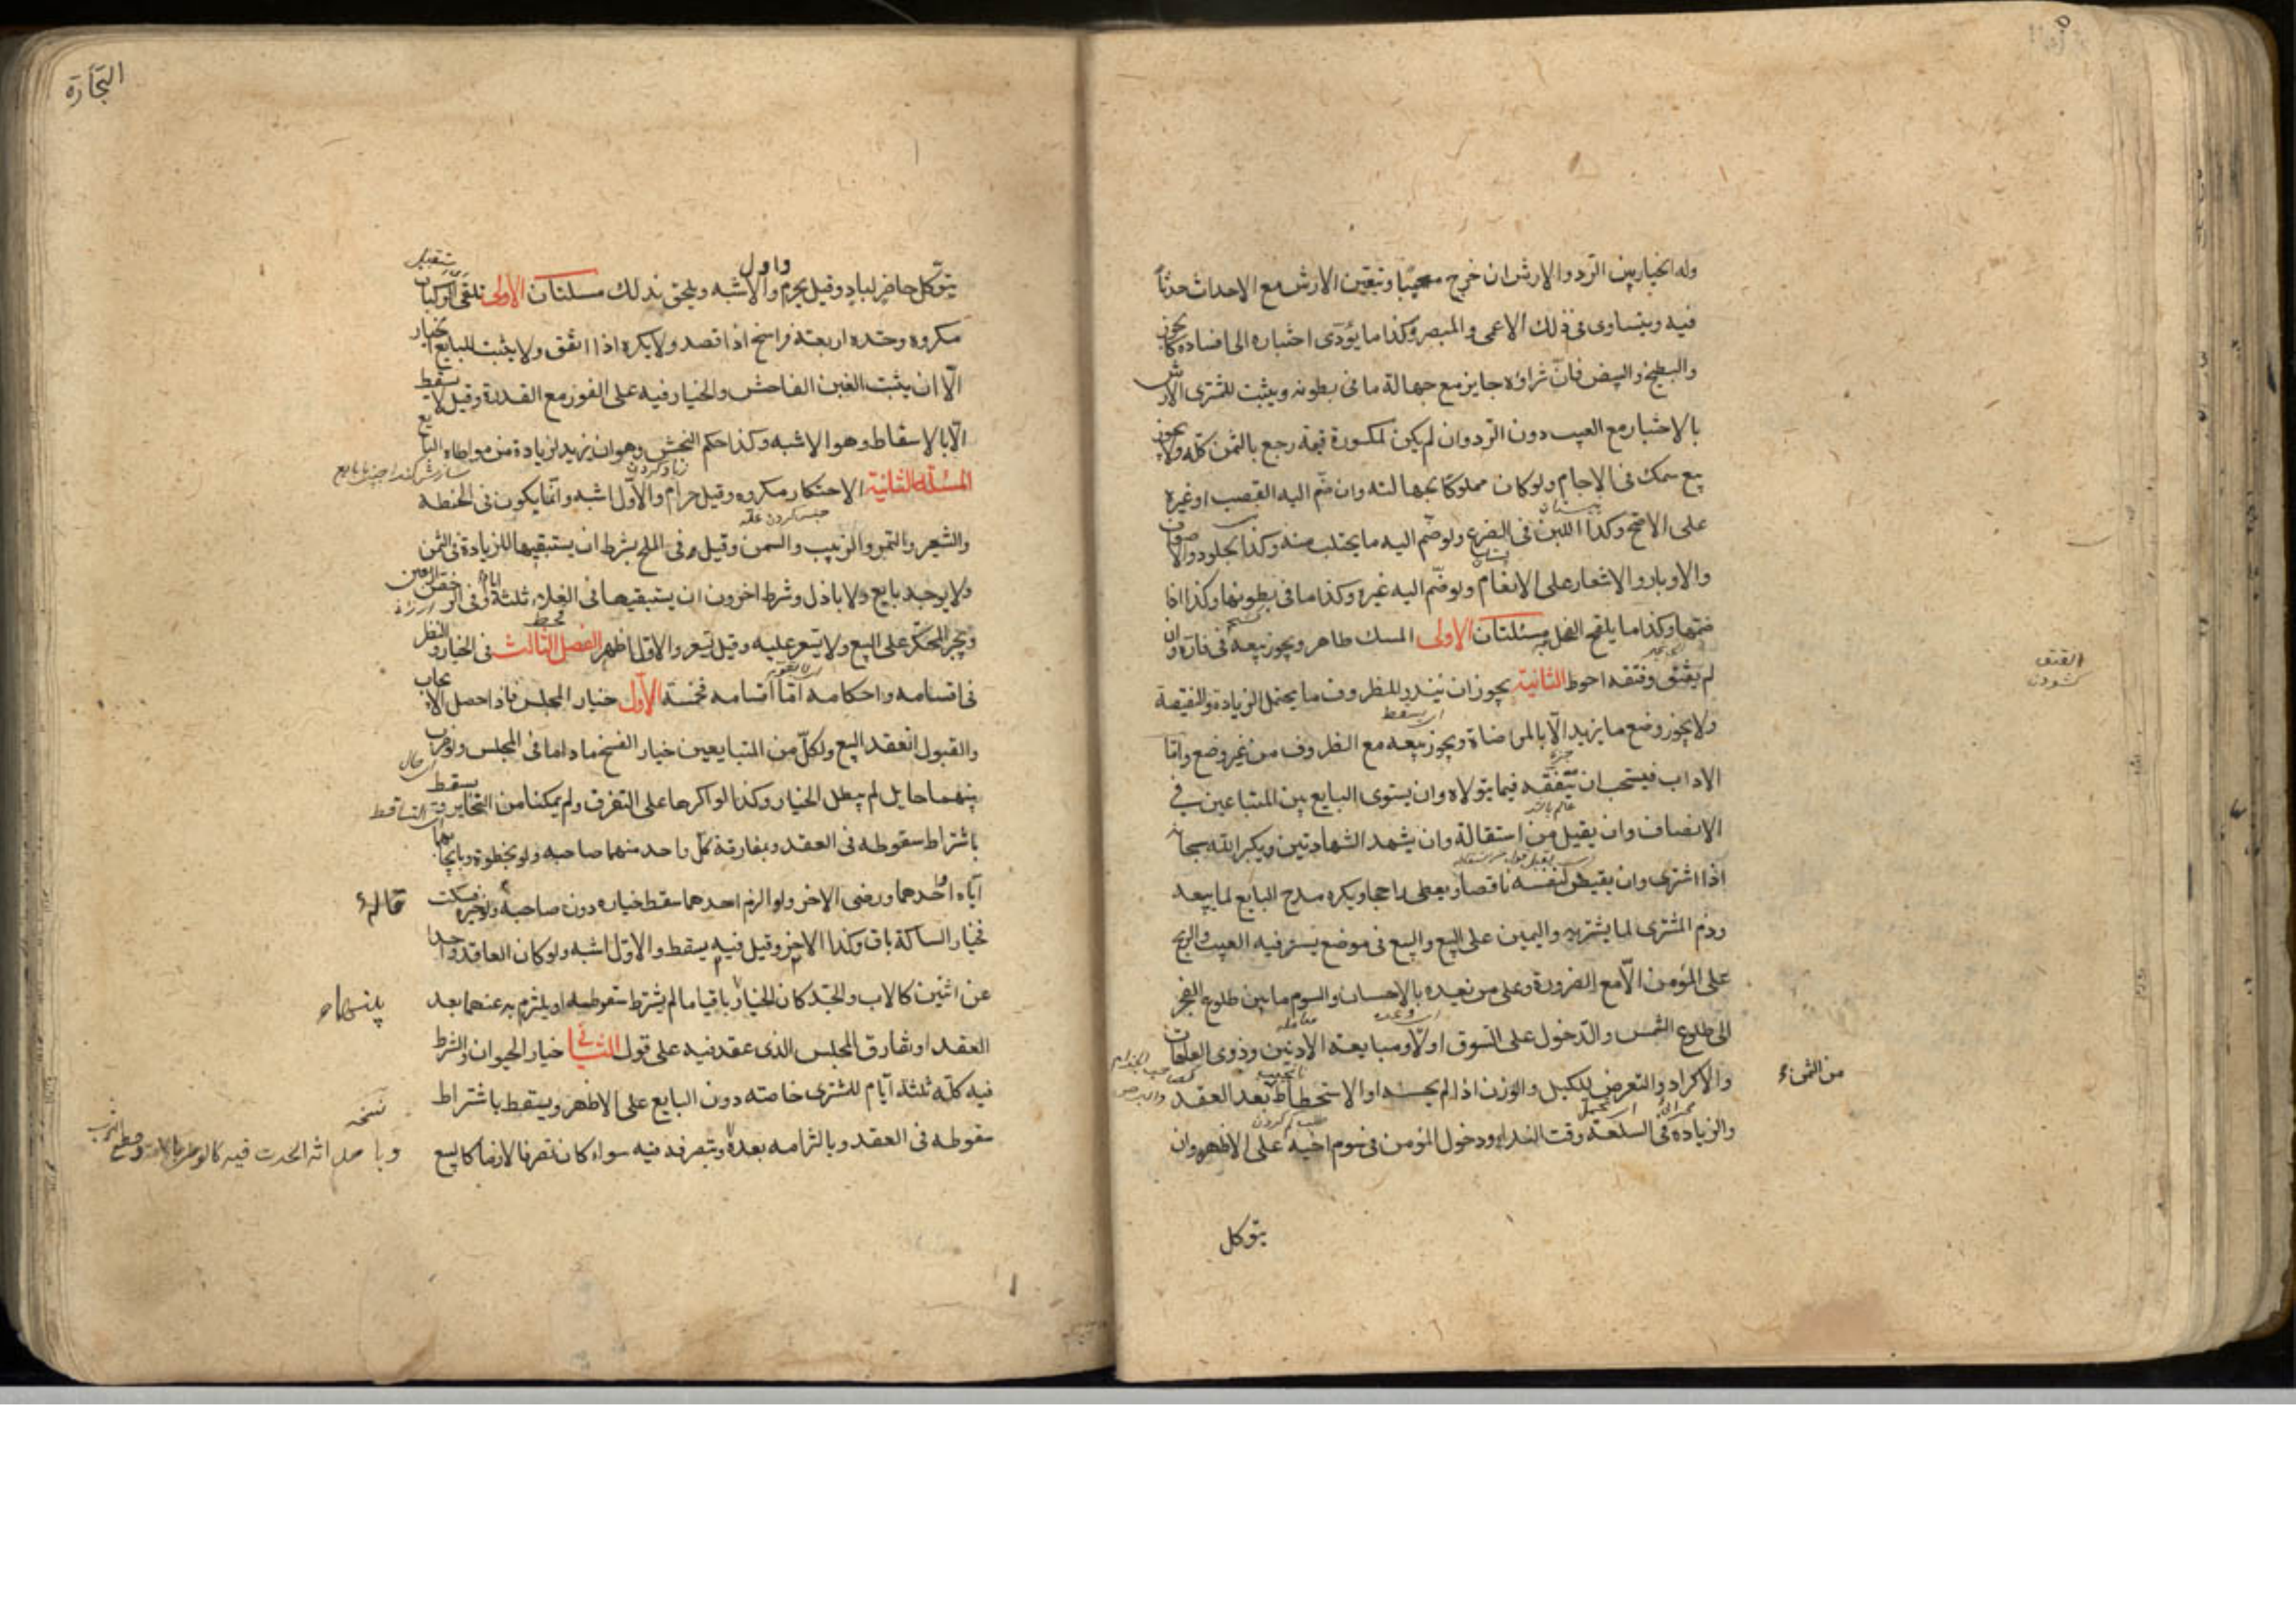 وله الخيار بين الرد والارش ان خرج معيبا ويتعين الارش مع الاحداث حدثا
فيه ويتساوى فى ذلك الاعمى والمبصر وكذا ما يؤدى اختباره الى افساده كالجوز
والبطيخ والبيض فان شراؤه جايز مع جهالة ما فى بطونه ويثبت للمشترى الارش
بالاختبار مع العيب دون الرد وان لم يكن لمكسورة قيمة رجع بالثمن كله ولا يجوز
بيع سمك فى الاجام ولو كان مملوكا لجهالته وان ضم اليه القصب او غيره
على الاصح وكذا اللبن فى الضرع ولو ضم اليه ما يحتلب منه وكذا الجلود والاصواف
والاوبار والاشعار على الانعام ولو ضم اليه غيره وكذا ما فى بطونها وكذا اذا
ضمها وكذا ما يلقح الفحل مسئلتان الاولى المسك طاهر ويجوز بيعه فى فاره وان
لم يفتق وفتقه احوط الثانية يجوز ان يندر للظروف ما يحتمل الزيادة والنقيصة
ولا يجوز وضع ما يزيد الا بالمراضاة ويجوز بيعه مع الظروف من غير وضع واما
الاداب فيستحب ان يتفقه فيما يتولاه وان يستوى البايع بين المتباعين فى
الانصاف وان يقيل من استقاله وان يشهد الشهادتين ويكبر الله سبحانه
اذا اشترى وان يقبض لنفسه ناقصا ويعطى راجحا ويكره مدح البايع لما يبيعه
وذم المشترى لما يشتريه واليمين على البيع والبيع فى موضع يستر فيه العيب والربح
على المؤمن الا مع الضرورة وعلى من يعيده بالاحسان والسوم ما بين طلوع الفجر
الى طلوع الشمس والدخول على السوق اولا ومبايعة الادنين وذوى العاهات
والاكراد والتعرض للكيل والوزن اذا لم يحسنه والاستحطاط بعد العقد
من الثمن
والزيادة فى السلعة وقت النداء ودخول المؤمن فى سوم اخيه على الاظهر وان
يتوكل
الفتق
كشودن
التجارة
يتوكل حاضر لباد وقيل يحرم والاول اشبه ويلحق بذلك مسئلتان الاولى تلقى الركبان
مكروه وحده اربعة فراسخ اذا قصد ولا يكره اذا اتفق ولا يثبت للبايع الخيار
الا ان يثبت الغبن الفاحش والخيار فيه على الفور مع القدرة وقيل لا يسقط
الا بالاسقاط وهو الاشبه وكذا حكم النجش وهو ان يزيد لزيادة من مواطاه البايع
المسئلة الثانية الاحتكار مكروه وقيل حرام والاول اشبه وانما يكون فى الحنطة
والشعير والتمر والزبيب والسمن وقيل وفى الملح بشرط ان يستبقيها للزيادة فى الثمن
ولا يوجد بايع ولا باذل وشرط اخرون ان يستبقيها فى الغلاء ثلثة ايام وفى الرخص اربعين
ويجبر المحتكر على البيع ولا يسعر عليه وقيل يسعر والاول اظهر الفصل الثالث فى الخيار والنظر
فى اقسامه واحكامه اما اقسامه فخمسة الاول خيار المجلس فاذا حصل الايجاب
والقبول انعقد البيع ولكل من المتبايعين خيار الفسخ ما داما فى المجلس ولو ضرب
بينهما حايل لم يبطل الخيار وكذا لو اكرها على التفرق ولم يمكنا من التخاير ويسقط
باشتراط سقوطه فى العقد وبمفارقة كل واحد منهما صاحبه ولو بخطوة وبايجابهما
اياه او احدهما ورضى الاخر ولو الزم احدهما سقط خياره دون صاحبه ولو خيره فسكت
فخيار الساكت باق وكذا الاخر وقيل فيه يسقط والاول اشبه ولو كان العاقد واحدا
عن اثنين كالاب والجد كان الخيار باقيا ما لم يشترط سقوطه او يلتزم به عنهما بعد
العقد او يفارق المجلس الذى عقد فيه على قول الثانى خيار الحيوان والشرط
فيه كله ثلثة ايام للمشترى خاصة دون البايع على الاظهر ويسقط باشتراط
سقوطه فى العقد وبالتزامه بعده وبتصرفه فيه سواء كان تصرفا لازما كالبيع
نسخه